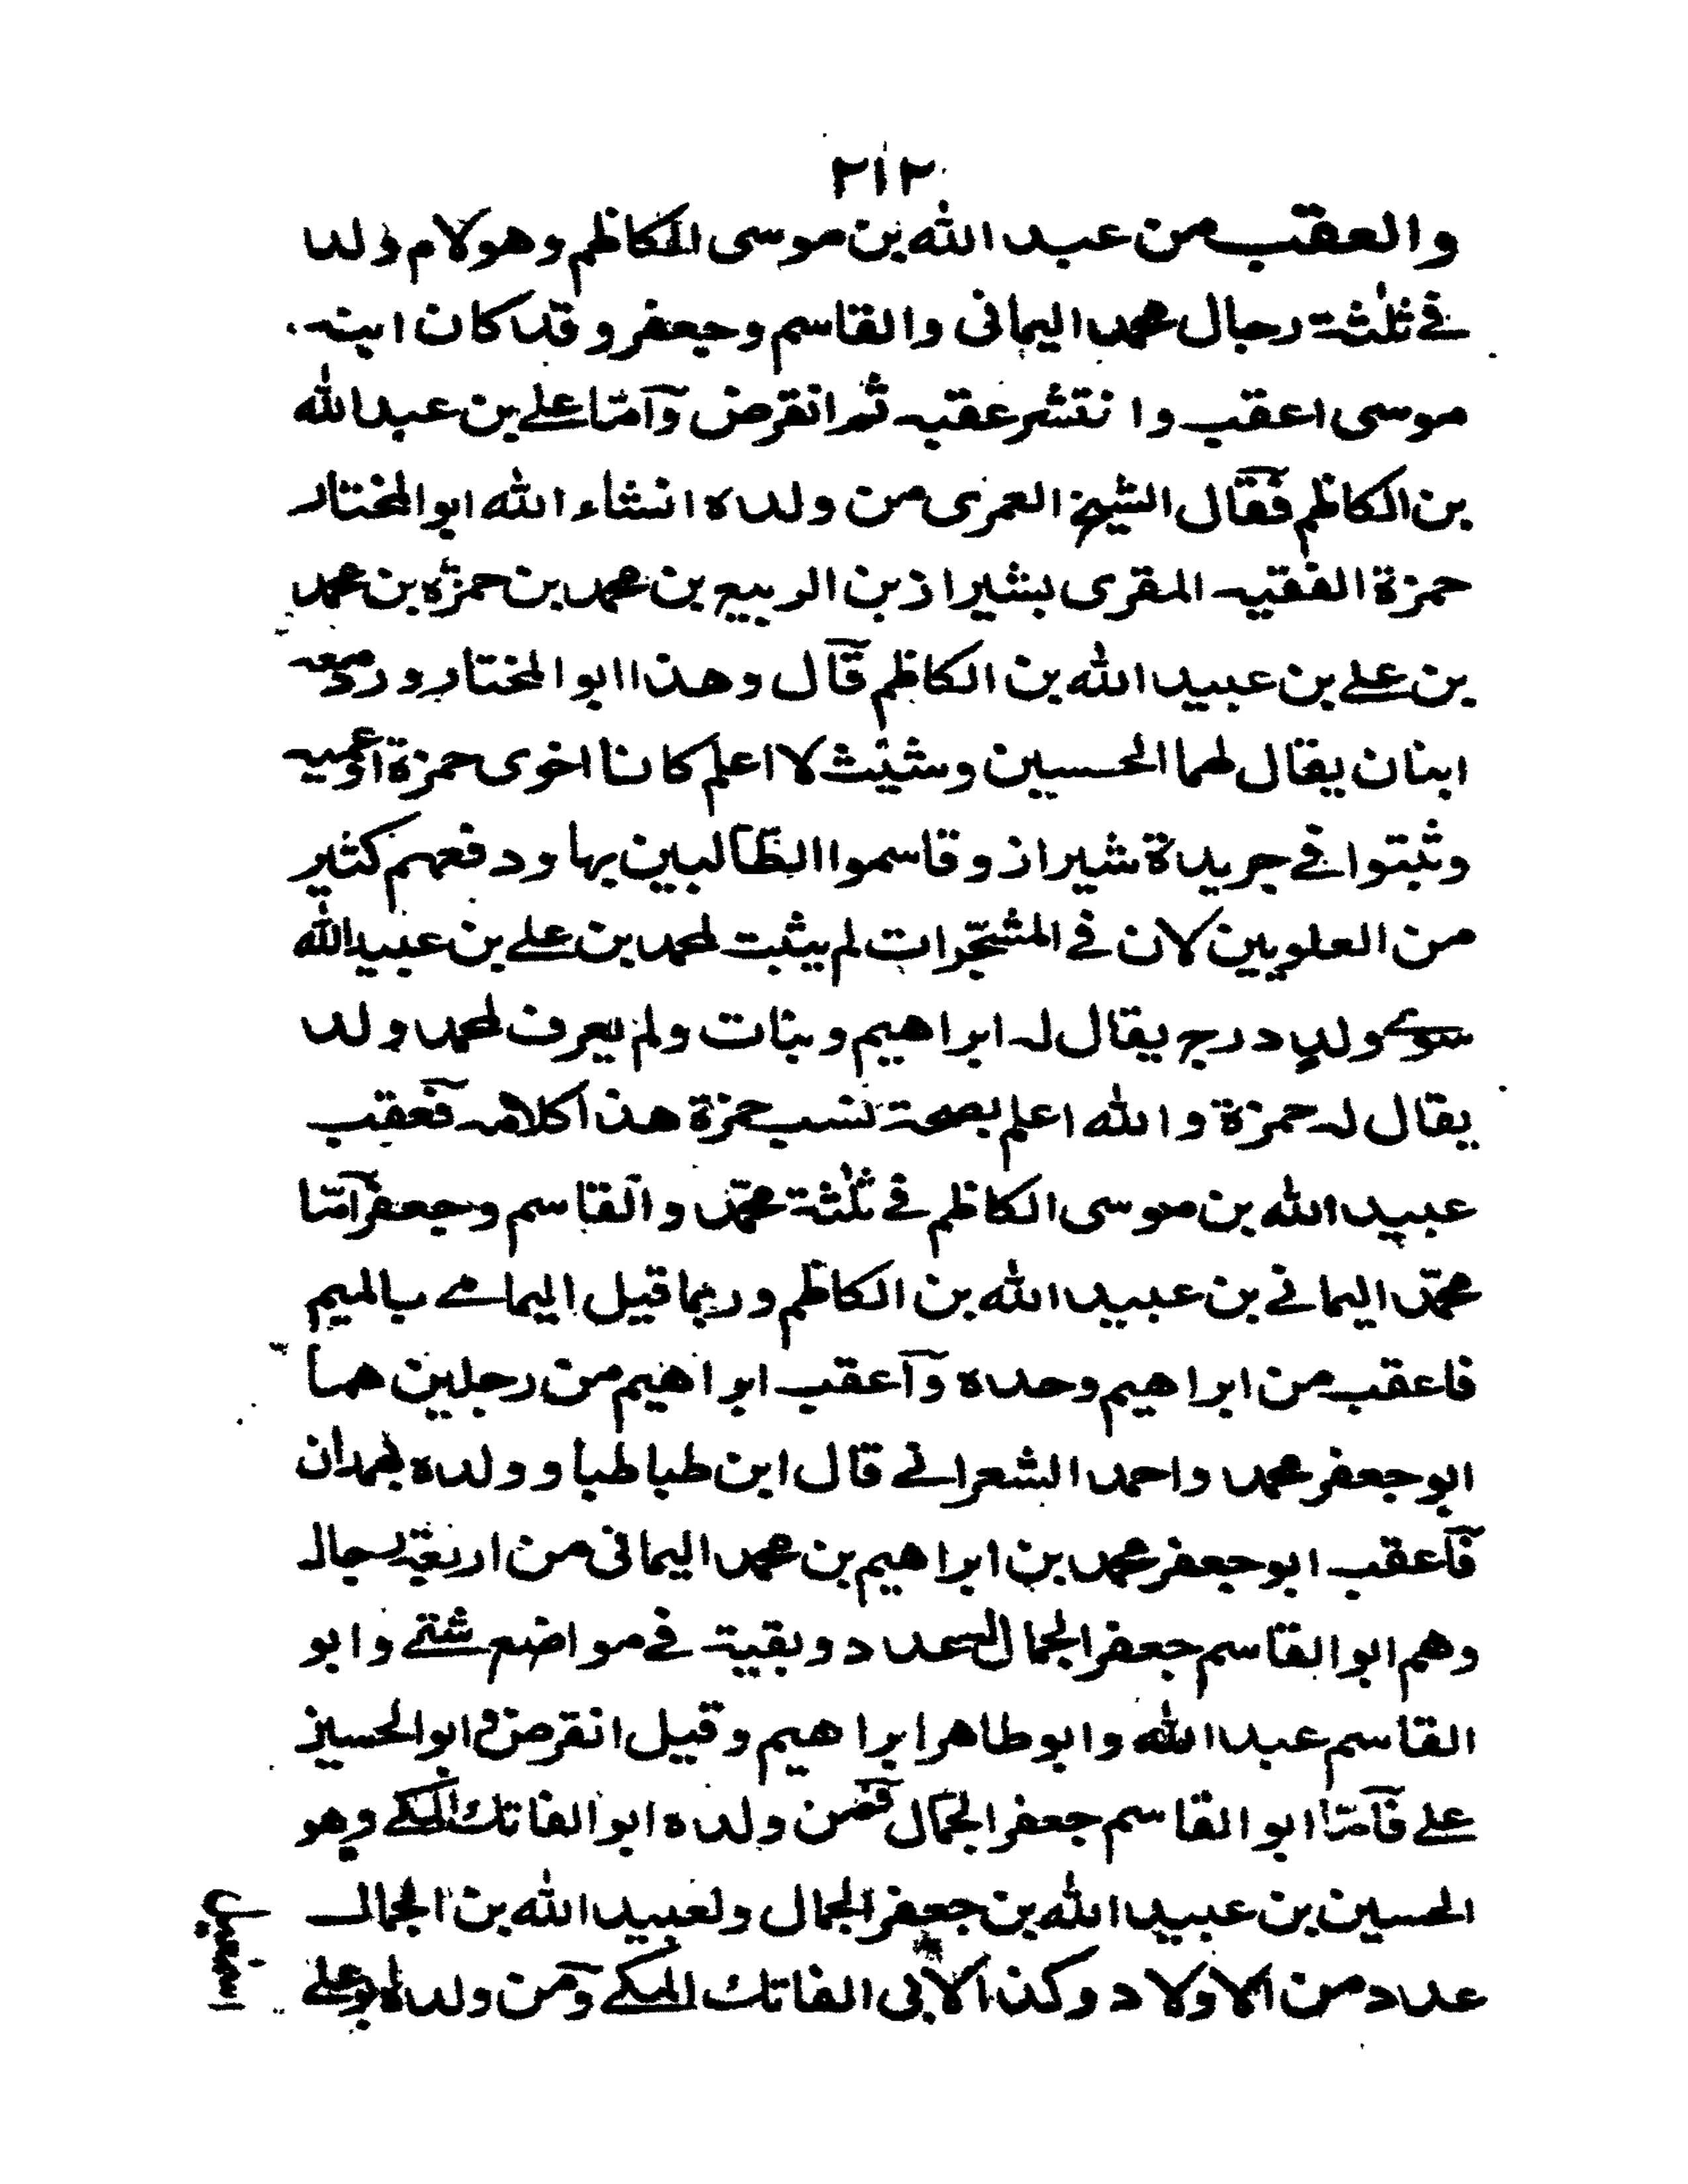 ٢١٢
والعقب من عبد الله بن موسى الكاظم وهو لام ولد
في ثلثة رجال محمد اليمانى والقاسم وجعفر وقد كان ابنه
موسى اعقب وانتشر عقبه ثم انقرض وآما علي بن عبدالله
بن الكاظم فقال الشيخ العمرى من ولده انشاء الله ابو المختار
حمزة الفقيه المقرى بشيراز بن الربيع بن محمد بن حمزه بن محمد
بن علي بن عبيد الله بن الكاظم قال وهذا ابو المختار ورد معه
ابنان يقال لهما الحسين وشيث لا اعلم كانا اخوى حمزة او عميه
وثبتوا في جريدة شيراز وقاسموا الطالبين بها ودفعهم كثير
من العلويين لان في المشجرات لم يثبت لمحمد بن علي بن عبيدالله
سوى ولد درج يقال له ابراهيم وبنات ولم يعرف لمحمد ولد
يقال له حمزة والله اعلم بصحة نسب حمزة هذا كلامه فعقب
عبيد الله بن موسى الكاظم في ثلثة محمد والقاسم وجعفر آما
محمد اليماني بن عبيد الله بن الكاظم وربما قيل اليمامي بالميم
فاعقب من ابراهيم وحده وآعقب ابراهيم من رجلين هما
ابو جعفر محمد واحمد الشعراني قال ابن طباطبا وولده بهمدان
فآعقب ابو جعفر محمد بن ابراهيم بن محمد اليمانى من اربعة رجال
وهم ابو القاسم جعفر الجمال له عدد وبقية في مواضع شتى وابو
القاسم عبد الله وابو طاهر ابراهيم وقيل انقرض وابو الحسين
علي فآما ابو القاسم جعفر الجمال فمن ولده ابو الفاتك المكي وهو
الحسين بن عبيد الله بن جعفر الجمال ولعبيد الله بن الجمال
عدد من الاولاد وكذا لابى الفاتك المكي وآمن ولده ابو علي